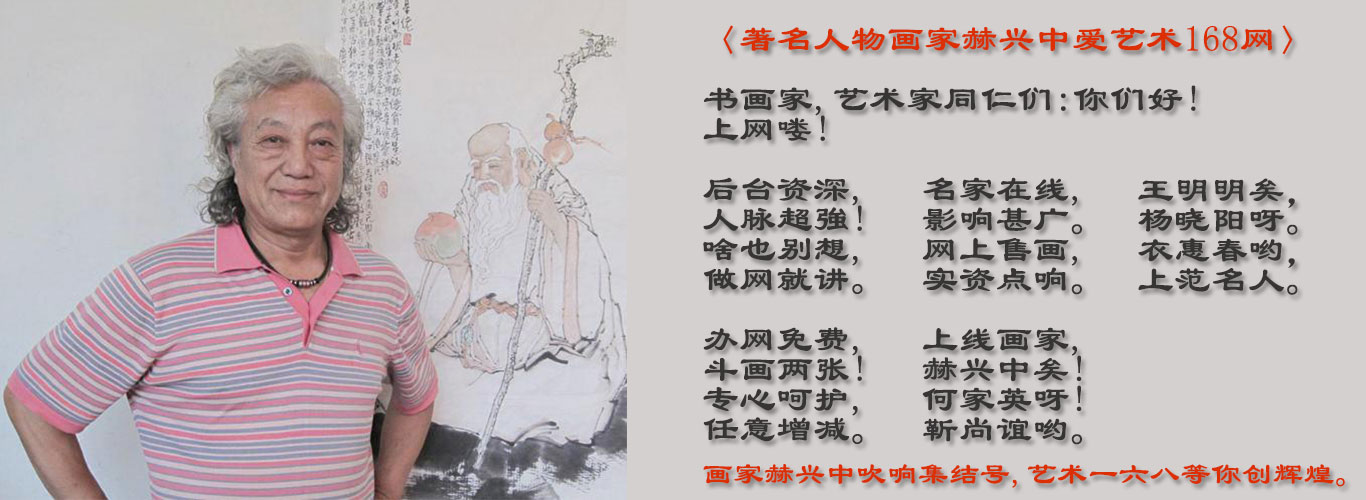 〈著名人物画家赫兴中爱艺术168网〉
书画家，艺术家同仁们：你们好！
上网喽！
后台资深，
人脉超強！
啥也别想，
做网就讲。
名家在线，
影响甚广。
网上售画，
实资点响。
王明明矣，
杨晓阳呀。
衣惠春哟，
上范名人。
办网免费，
斗画两张！
专心呵护，
任意增减。
上线画家，
赫兴中矣！
何家英呀！
靳尚谊哟。
画家赫兴中吹响集结号，艺术一六八等你创辉煌。